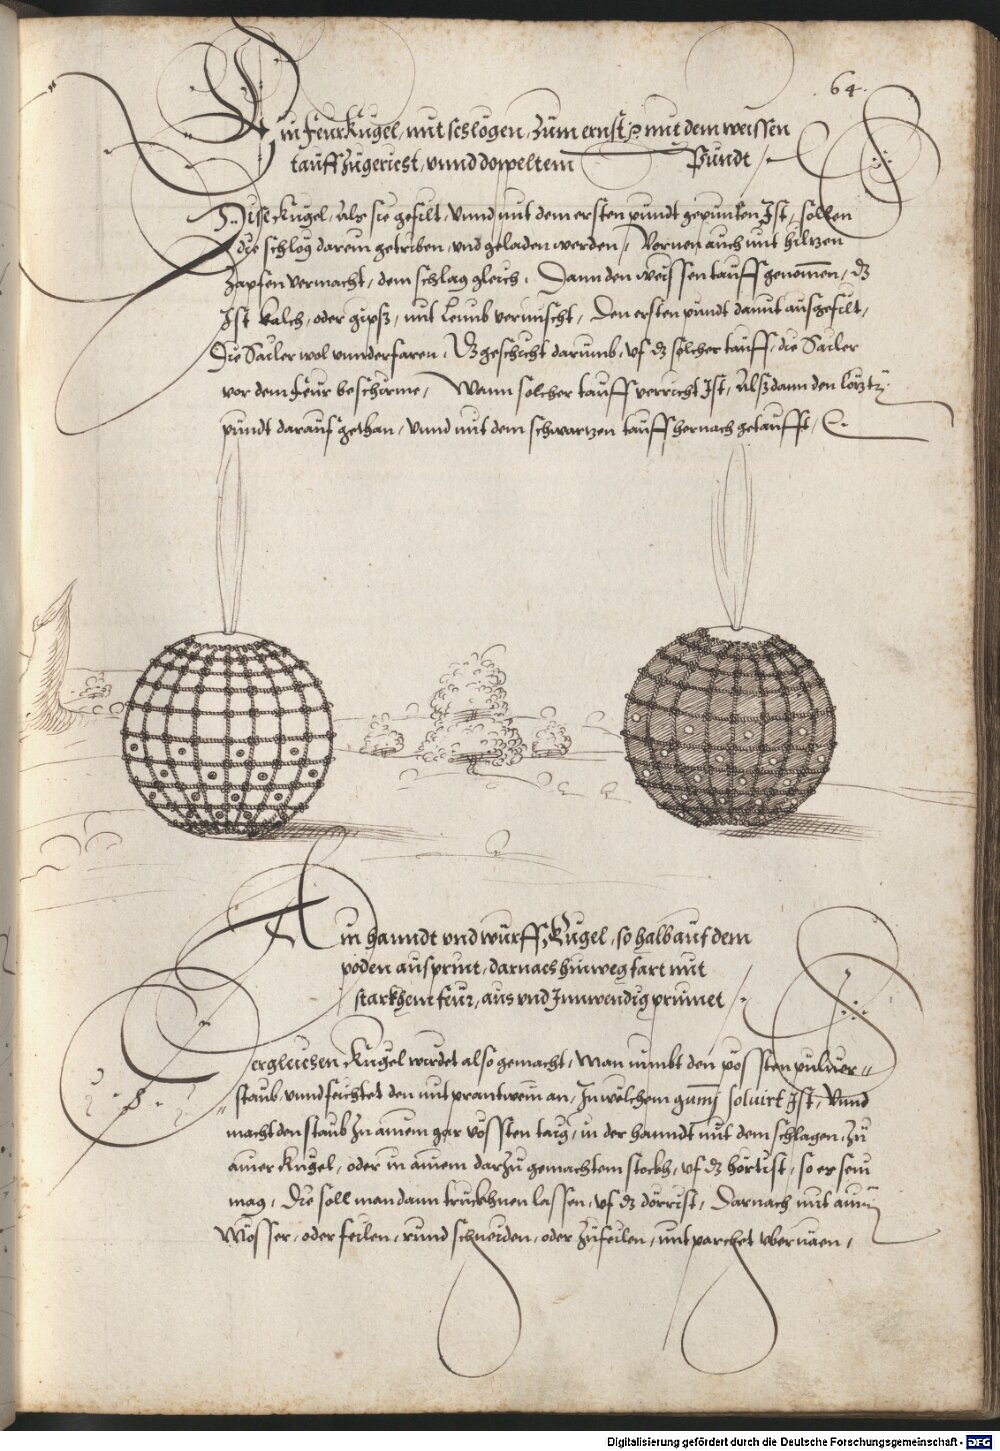 64.
Ein feur Kugel, mit schlögen, zum ernst, mit dem weissen
tauff zugericht, vnnd doppeltem Pundt
Dise Kugel, Als sie gefilt, Vnnd mit dem ersten pundt gepunten Ist, sollen
die schlög darein getriben, vnd geladen werden, Vornen auch mit hiltzen
Zapfen vermacht, dem schlag gleich. Dann den weissen tauff genomen, dz
Ist Kalch, oder gipß, mit Leimb vermischt, Den ersten pundt damit ausgefilt,
Die Sailer wol vnnderfaren. Dz geschicht darumb, vf dz solcher tauff, die Sailer
vor dem feur beschirme, Wann solcher tauff verricht Ist, Alßdann den lötzt
pundt darauf gethan, Vnnd mit dem schwartzen tauff hernach getaufft,
Ain hanndt vnd wurff Kugel, so halb auf dem
poden ausprint, darnach hinweg fart mit
starkhem feur, aus vnd Innwendig prinnet
Dergleichen Kugel wirdet also gemacht, Man nimbt den pössten puluer
staub, vnnd feichtet den mit prantwein an, In wölchem gummj soluirt Ist, Vnnd
macht den staub zu ainem gar vössten taig, in der hanndt mit dem schlagen, zu
ainer Kugel, oder in ainem darzu gemachtem stockh, vf dz hörtist, so er sein
mag, Die soll man dann truckhnen lassen, vf dz dörrist, Darnach mit aim
Mösser, oder feilen, rund schneiden, oder zufeilen, mit parchet vbernäen,
Digitalisierung gefördert durch die Deutsche Forschungsgemeinschaft - DFG